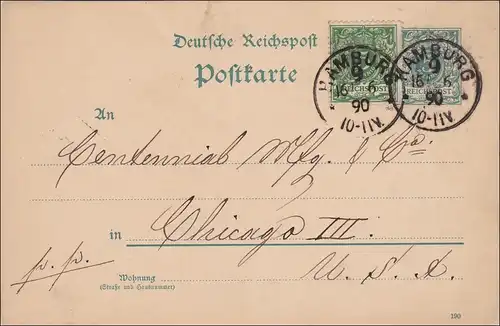 Deutsche Reichspost
Postkarte
HAMBURG
9
16 6
90
10-11V.
REICHSPOST
HAMBURG
9
16 6
90
10-11V.
REICHSPOST
An
Centennial Mfg. & Co.
in Chicago Ill.
p. p.
U. S. A.
Wohnung
(Straße und Hausnummer)
190